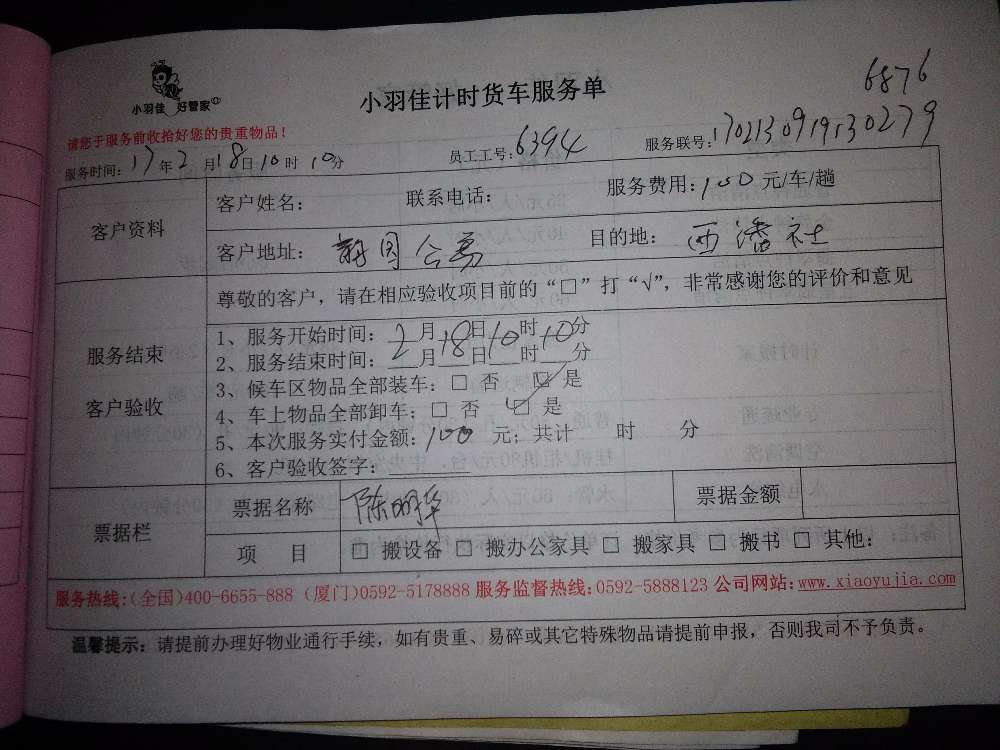 小羽佳 好管家
小羽佳计时货车服务单
6876
请您于服务前收拾好您的贵重物品！
服务时间：17年2月18日10时10分 员工工号：6394 服务联号：1702130919130279
客户资料
客户姓名： 联系电话： 服务费用：100元/车/趟
客户地址： 目的地：西潘社
尊敬的客户，请在相应验收项目前的“□”打“√”，非常感谢您的评价和意见
服务结束
客户验收
1、服务开始时间：2月18日10时10分
2、服务结束时间：___月___日___时___分
3、候车区物品全部装车：□ 否 ☑ 是
4、车上物品全部卸车：□ 否 ☑ 是
5、本次服务实付金额：100 元；共计 时 分
6、客户验收签字：
票据栏
票据名称 陈明华 票据金额
项 目 □ 搬设备 □ 搬办公家具 □ 搬家具 □ 搬书 □ 其他：
服务热线：(全国)400-6655-888 (厦门)0592-5178888 服务监督热线：0592-5888123 公司网站：www.xiaoyujia.com
温馨提示：请提前办理好物业通行手续，如有贵重、易碎或其它特殊物品请提前申报，否则我司不予负责。